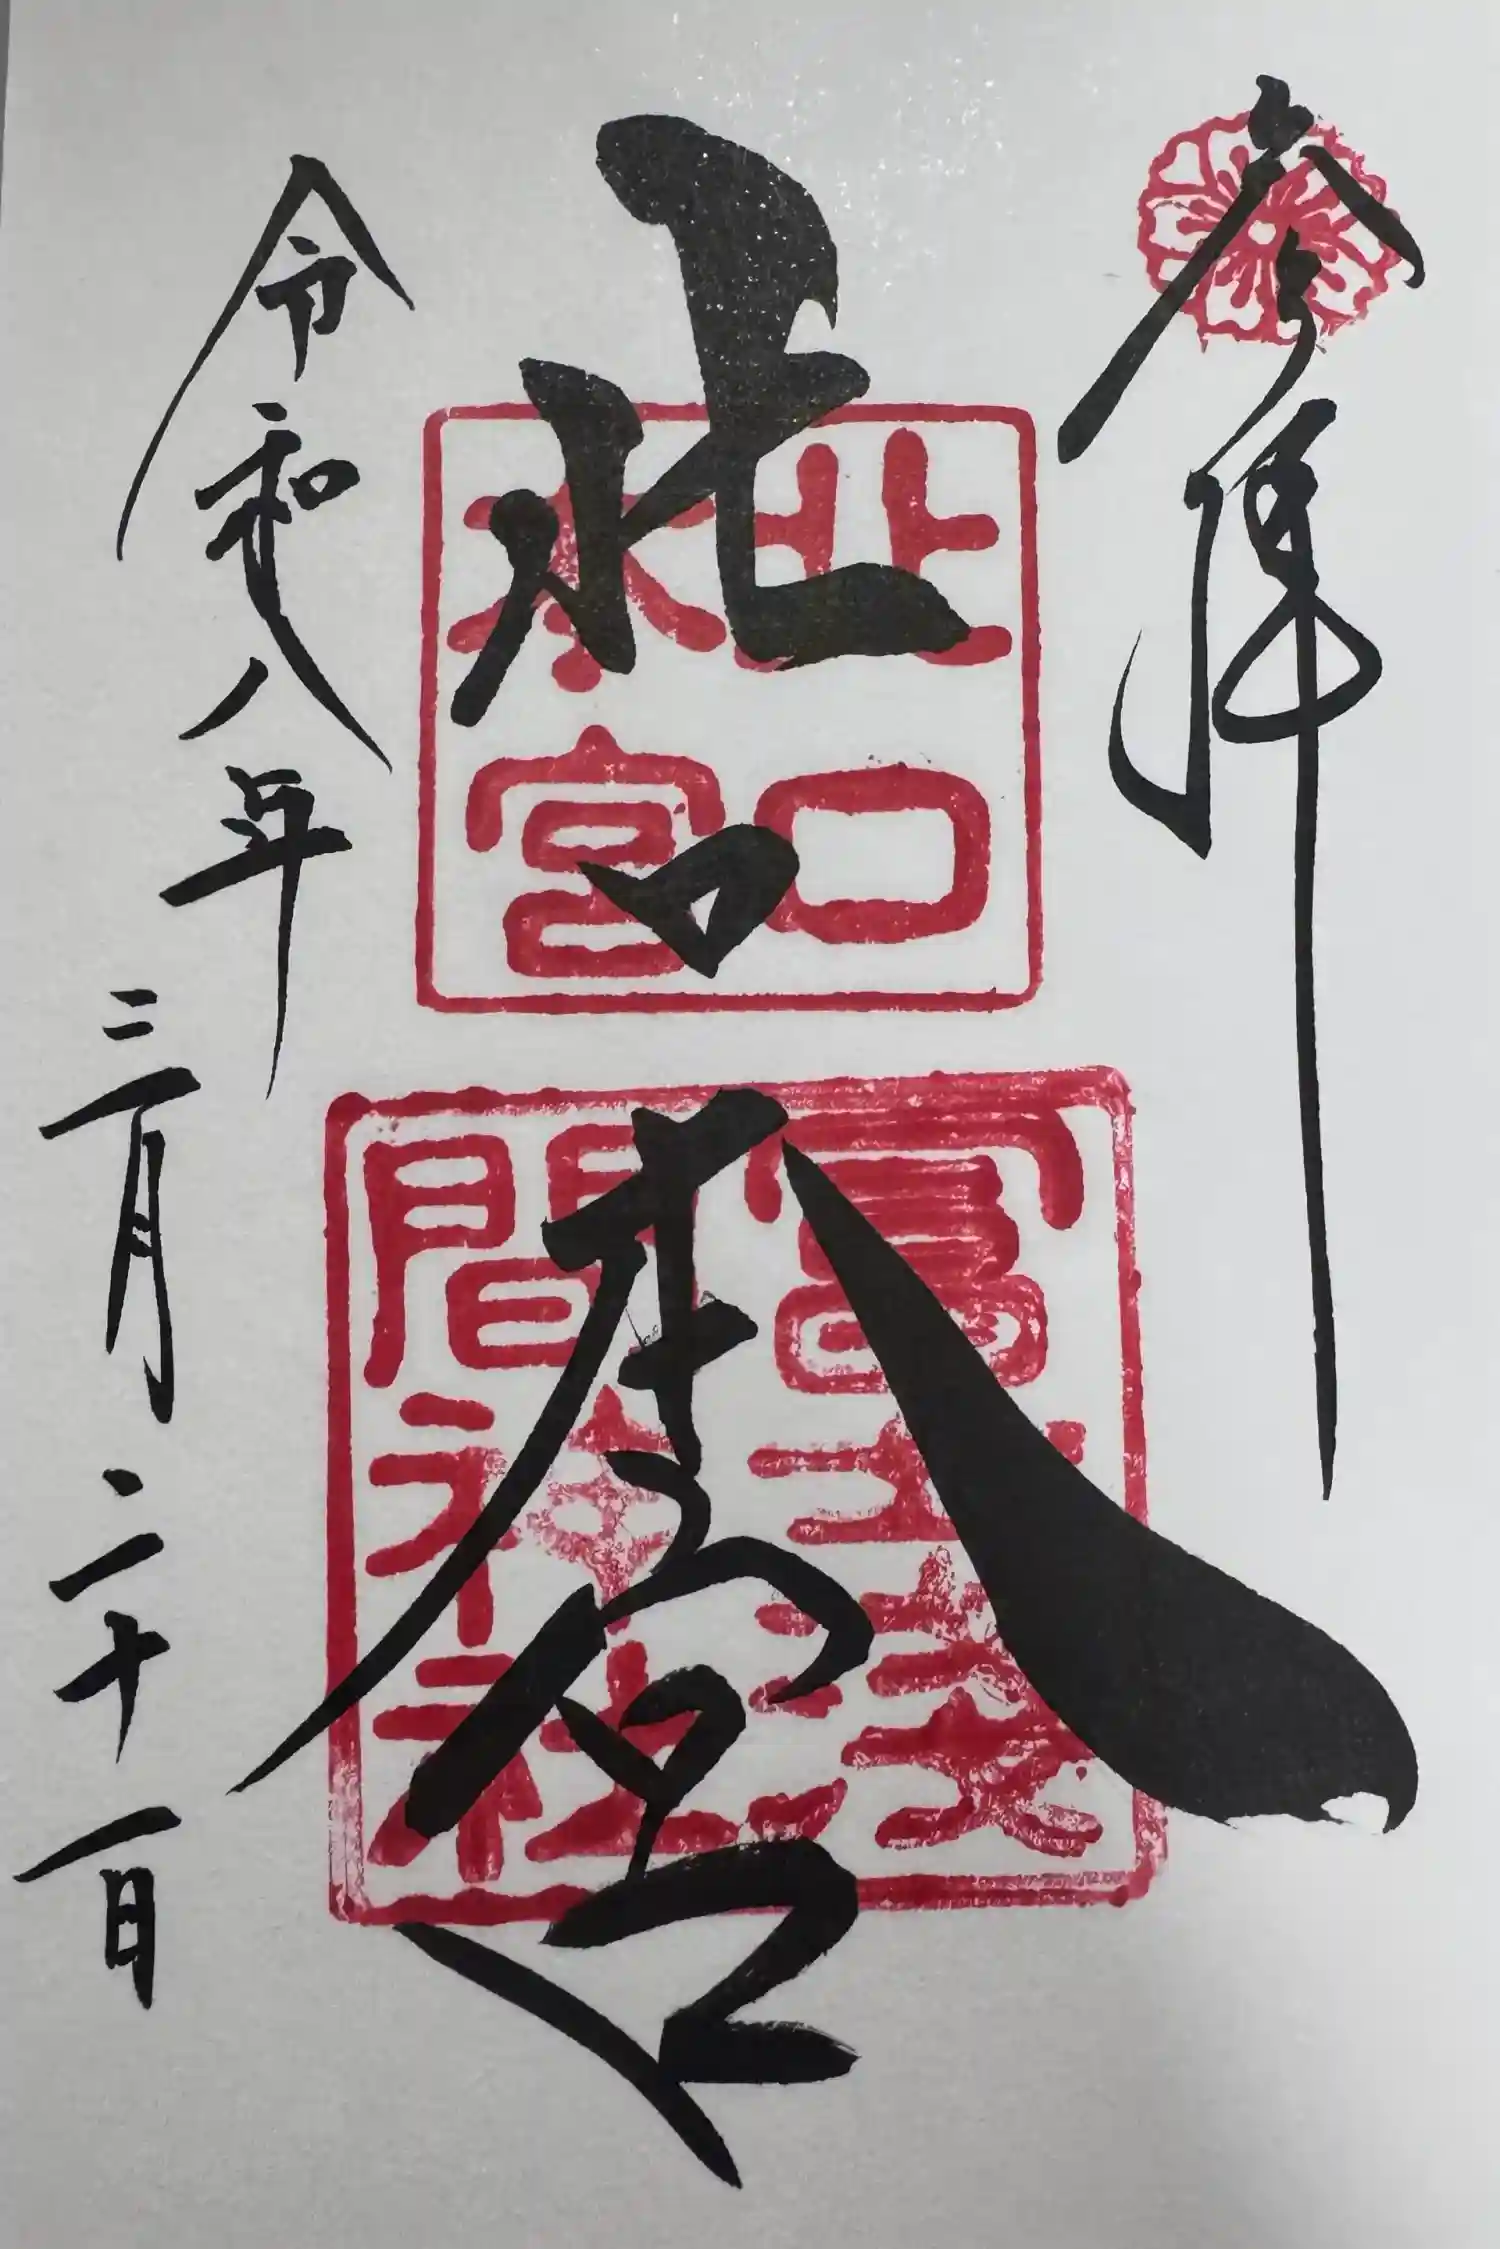 参拝
北口本宮
北口
本宮
冨士淺
間神社
令和八年
三月二十一日